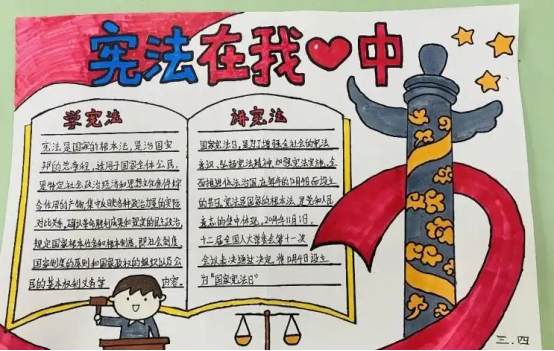 宪法在我中
学宪法
宪法是国家的根本法,是治国安
邦的总章程,适用于国家全体公民,
是特定社会政治经济和思想文化条件综
合作用的产物,集中反映各种政治力量的实际
对比关系,确认革命胜利成果和现实的民主政治,
规定国家根本任务和根本制度,即社会制度、
国家制度的原则和国家政权的组织以及公
民的基本权利义务等
内容。
讲宪法
国家宪法日,是为了增强全社会的宪法
意识,弘扬宪法精神,加强宪法实施,全
面推进依法治国,在每年的12月4日设立
的节日。宪法是国家的根本法,是党和人民
意志的集中体现,2014年11月1日,
十二届全国人大常委会第十一次
会议表决通过决定,将12月4日设立
为“国家宪法日”
三.四